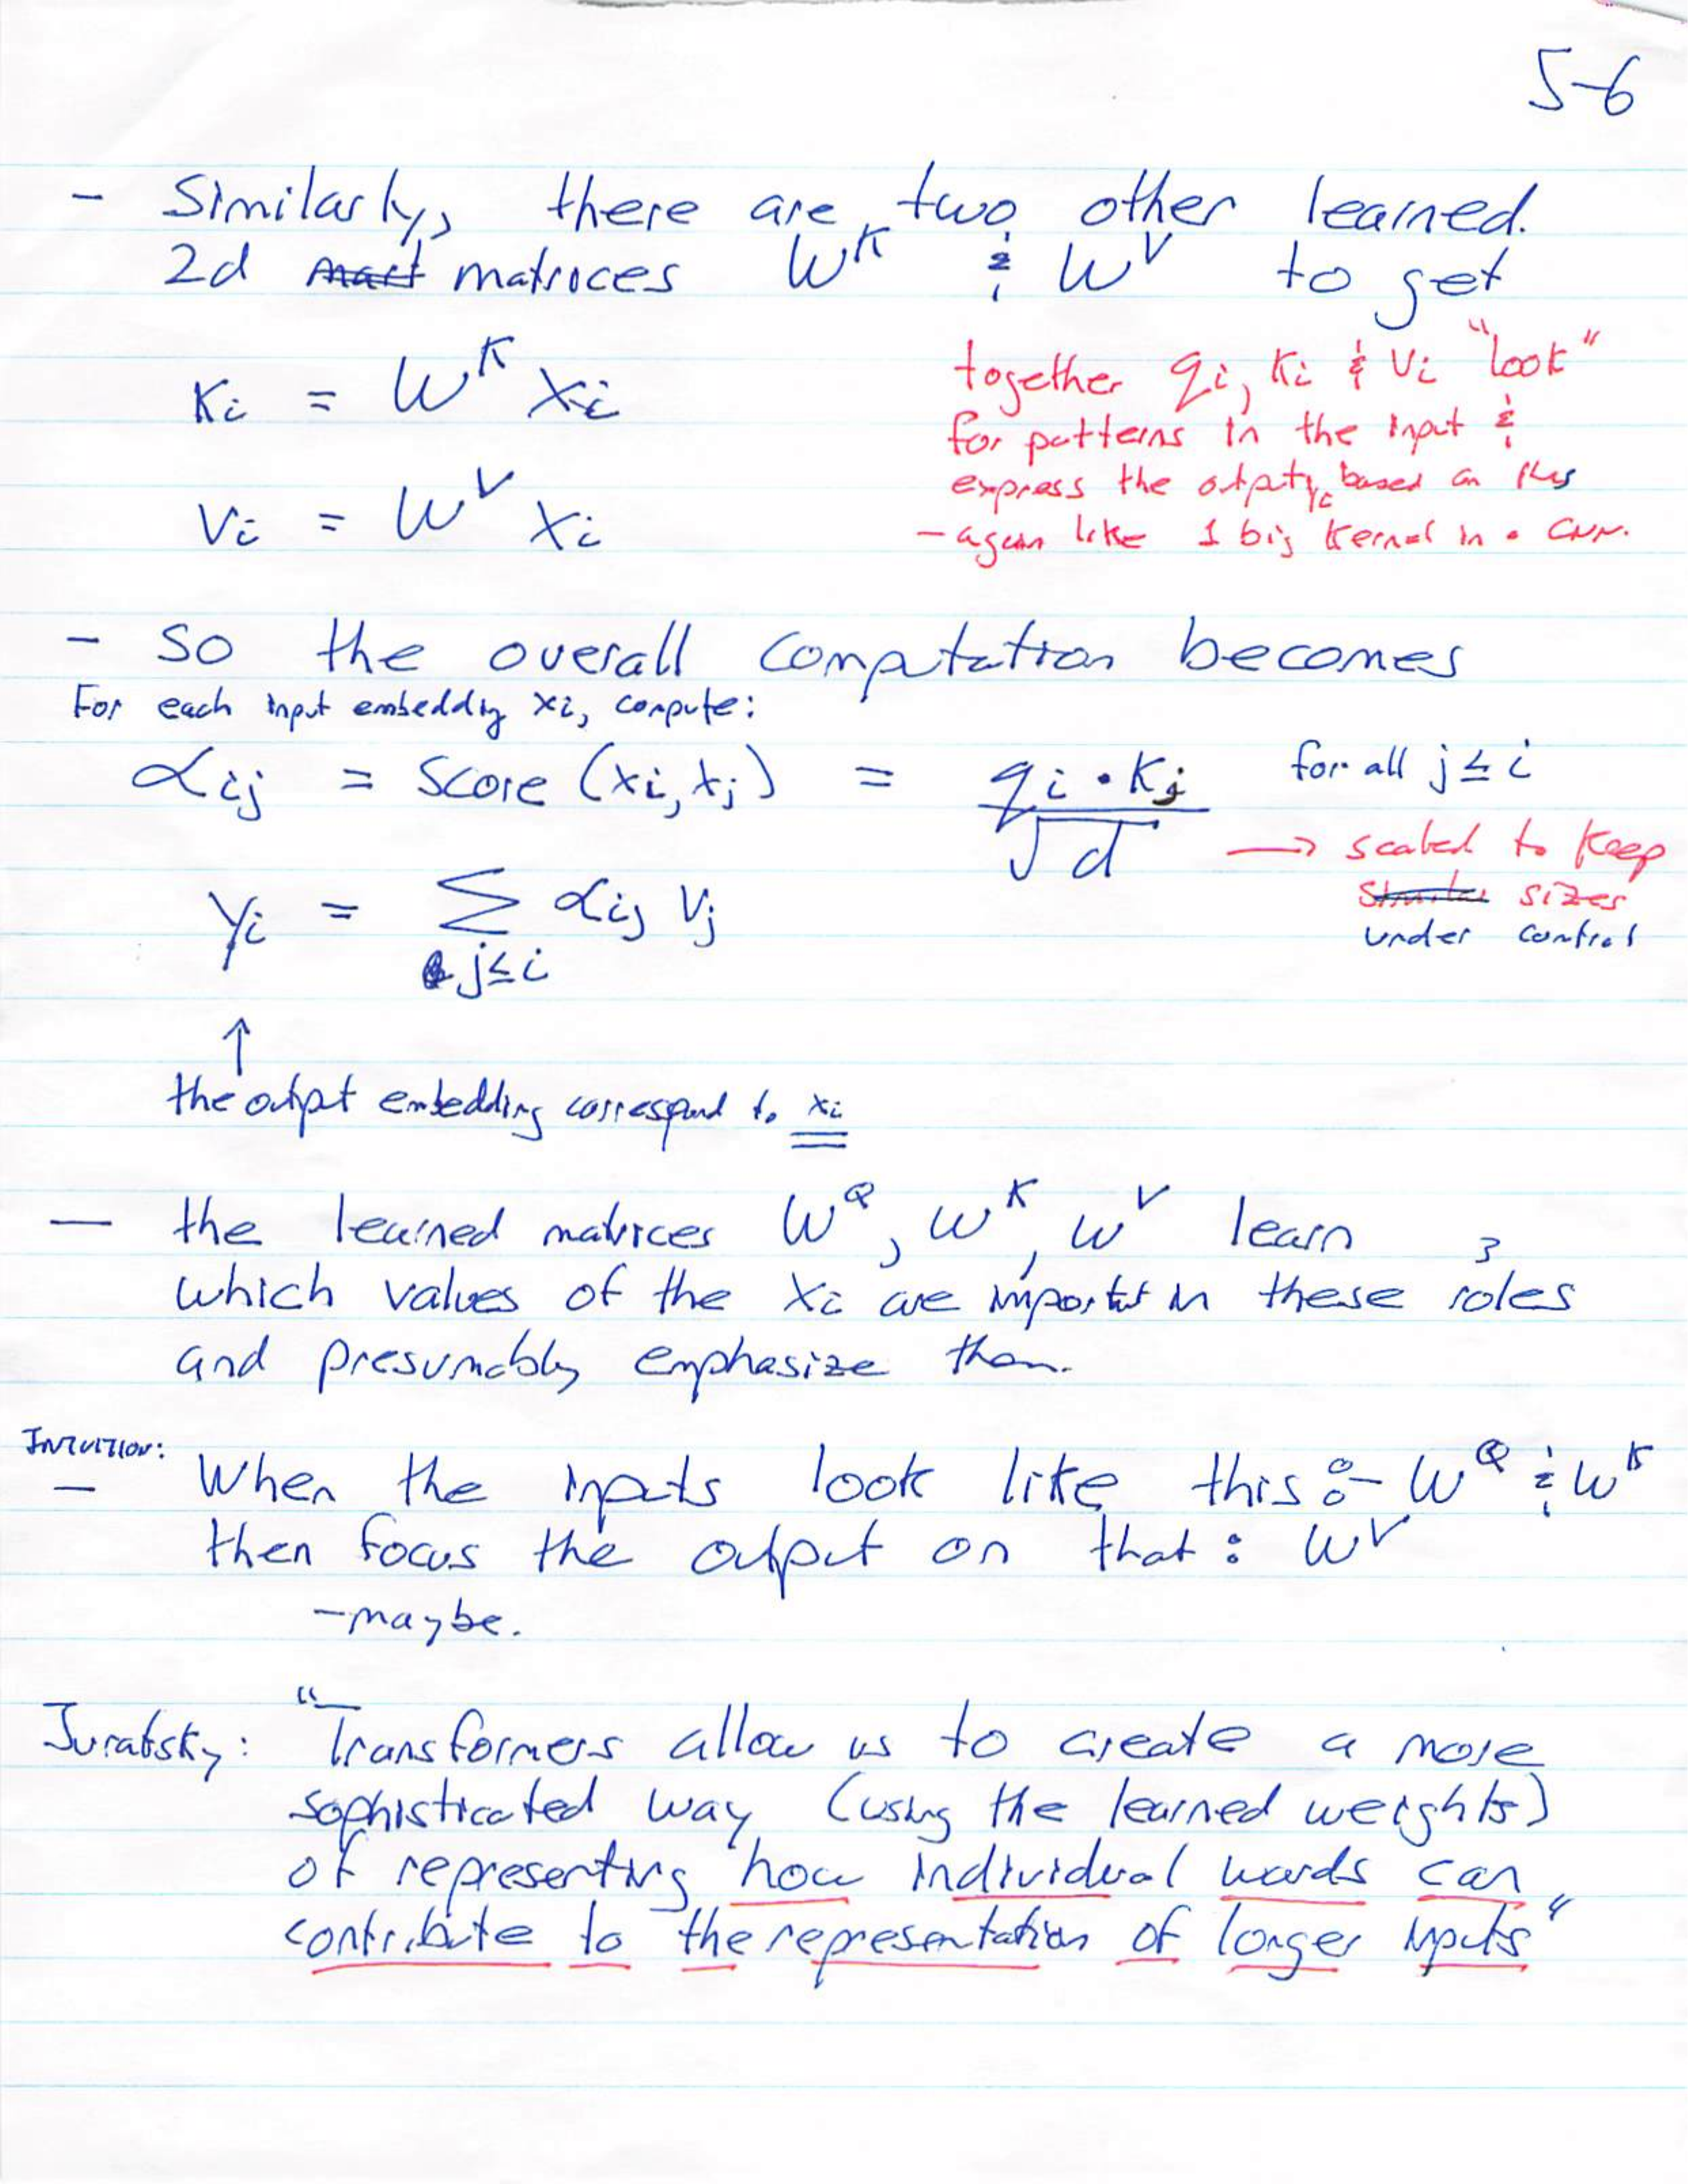 5-6
- Similarly, there are two other learned.
2d mart matrices W^K & W^V to get
K_i = W^K x_i
V_i = W^V x_i
together q_i, K_i & V_i "look"
for patterns in the input &
express the output y_i based on this
- again like 1 big kernel in a CNN.
- So the overall computation becomes
For each input embedding x_i, compute:
α_ij = Score (x_i, x_j) = q_i · K_j / √d for all j ≤ i
→ scaled to keep
similar sizes
under control
y_i = Σ_{j≤i} α_ij V_j
↑
the output embedding correspond to x_i
— the learned matrices W^Q, W^K, W^V learn
3
which values of the x_i are important in these roles
and presumably emphasize them.
Intuition:
— When the inputs look like this :- W^Q & W^K
then focus the output on that : W^V
- maybe.
Jurafsky: "Transformers allow us to create a more
sophisticated way (using the learned weights)
of representing how individual words can
contribute to the representation of longer inputs"